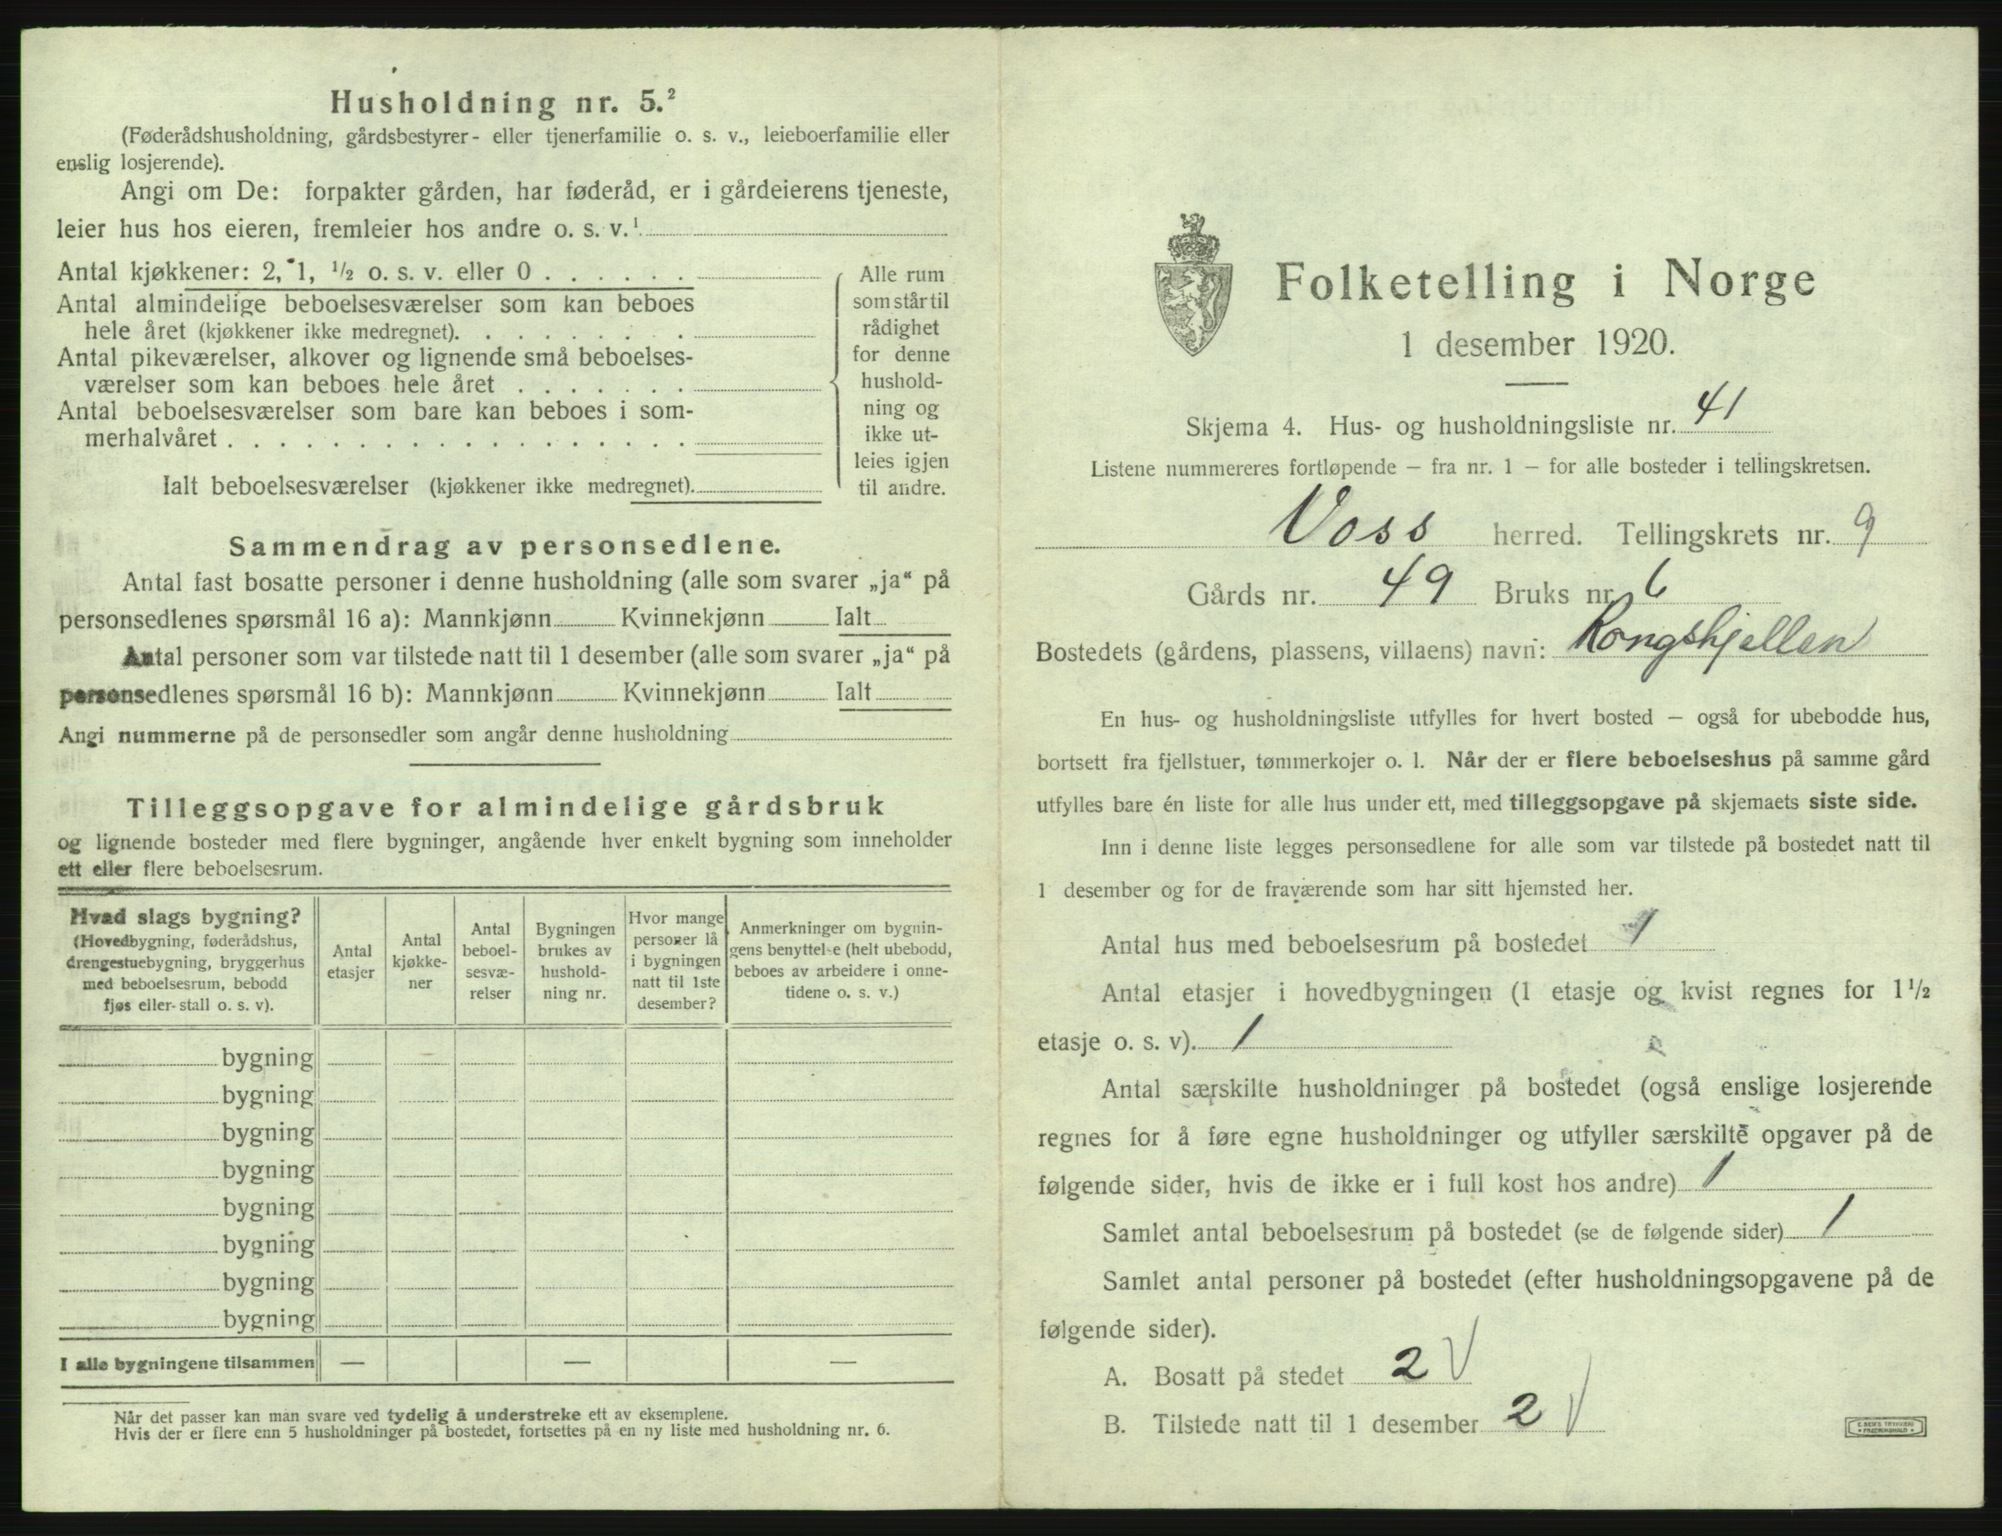 Husholdning nr. 5.²
(Føderådshusholdning, gårdsbestyrer- eller tjenerfamilie o. s. v., leieboerfamilie eller
enslig losjerende).
Angi om De: forpakter gården, har føderåd, er i gårdeierens tjeneste,
leier hus hos eieren, fremleier hos andre o. s. v.¹
Antal kjøkkener: 2, 1, ½ o. s. v. eller 0 . . . . . .
Antal almindelige beboelsesværelser som kan beboes
hele året (kjøkkener ikke medregnet). . . . . . . . .
Antal pikeværelser, alkover og lignende små beboelses-
værelser som kan beboes hele året . . . . . . .
Antal beboelsesværelser som bare kan beboes i som-
merhalvåret . . . . . . . . . . . . . . . . . .
Ialt beboelsesværelser (kjøkkener ikke medregnet).
Alle rum
som står til
rådighet
for denne
hushold-
ning og
ikke ut-
leies igjen
til andre.
Sammendrag av personsedlene.
Antal fast bosatte personer i denne husholdning (alle som svarer „ja“ på
personsedlenes spørsmål 16 a): Mannkjønn Kvinnekjønn Ialt
Antal personer som var tilstede natt til 1 desember (alle som svarer „ja“ på
personsedlenes spørsmål 16 b): Mannkjønn Kvinnekjønn Ialt
Angi nummerne på de personsedler som angår denne husholdning
Tilleggsopgave for almindelige gårdsbruk
og lignende bosteder med flere bygninger, angående hver enkelt bygning som inneholder
ett eller flere beboelsesrum.
Hvad slags bygning?
(Hovedbygning, føderådshus,
drengestuebygning, bryggerhus
med beboelsesrum, bebodd
fjøs eller stall o. s. v).
Antal
etasjer
Antal
kjøkke-
ner
Antal
beboel-
sesvæ-
relser
Bygningen
brukes av
hushold-
ning nr.
Hvor mange
personer lå
i bygningen
natt til 1ste
desember?
Anmerkninger om bygnin-
gens benyttelse (helt ubebodd,
beboes av arbeidere i onne-
tidene o. s. v.)
bygning
bygning
bygning
bygning
bygning
bygning
bygning
bygning
I alle bygningene tilsammen — — —
Når det passer kan man svare ved tydelig å understreke ett av eksemplene.
Hvis der er flere enn 5 husholdninger på bostedet, fortsettes på en ny liste med husholdning nr. 6.
Folketelling i Norge
1 desember 1920.
Skjema 4. Hus- og husholdningsliste nr. 41
Listene nummereres fortløpende – fra nr. 1 – for alle bosteder i tellingskretsen.
Voss herred. Tellingskrets nr. 9
Gårds nr. 49 Bruks nr. 6
Bostedets (gårdens, plassens, villaens) navn: Rongshjellen
En hus- og husholdningsliste utfylles for hvert bosted – også for ubebodde hus,
bortsett fra fjellstuer, tømmerkojer o. l. Når der er flere beboelseshus på samme gård
utfylles bare én liste for alle hus under ett, med tilleggsopgave på skjemaets siste side.
Inn i denne liste legges personsedlene for alle som var tilstede på bostedet natt til
1 desember og for de fraværende som har sitt hjemsted her.
Antal hus med beboelsesrum på bostedet 1
Antal etasjer i hovedbygningen (1 etasje og kvist regnes for 1½
etasje o. s. v). 1
Antal særskilte husholdninger på bostedet (også enslige losjerende
regnes for å føre egne husholdninger og utfyller særskilte opgaver på de
følgende sider, hvis de ikke er i full kost hos andre) 1
Samlet antal beboelsesrum på bostedet (se de følgende sider) 1
Samlet antal personer på bostedet (efter husholdningsopgavene på de
følgende sider).
A. Bosatt på stedet 2 V
B. Tilstede natt til 1 desember 2 V